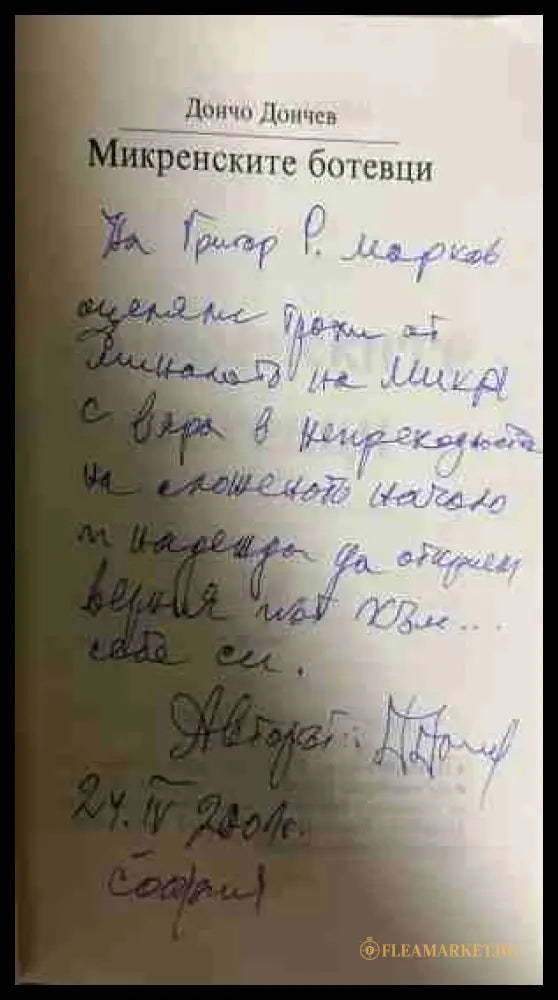 Дончо Дончев
Микренските ботевци
На Григор Р. Марков
трохи от
миналото на Микре
с вяра в непреходността
на сложеното начало
и надежда да открием
верния път към...
себе си.
Авторът:
24. IV 2001г.
София
FLEAMARKET.BG